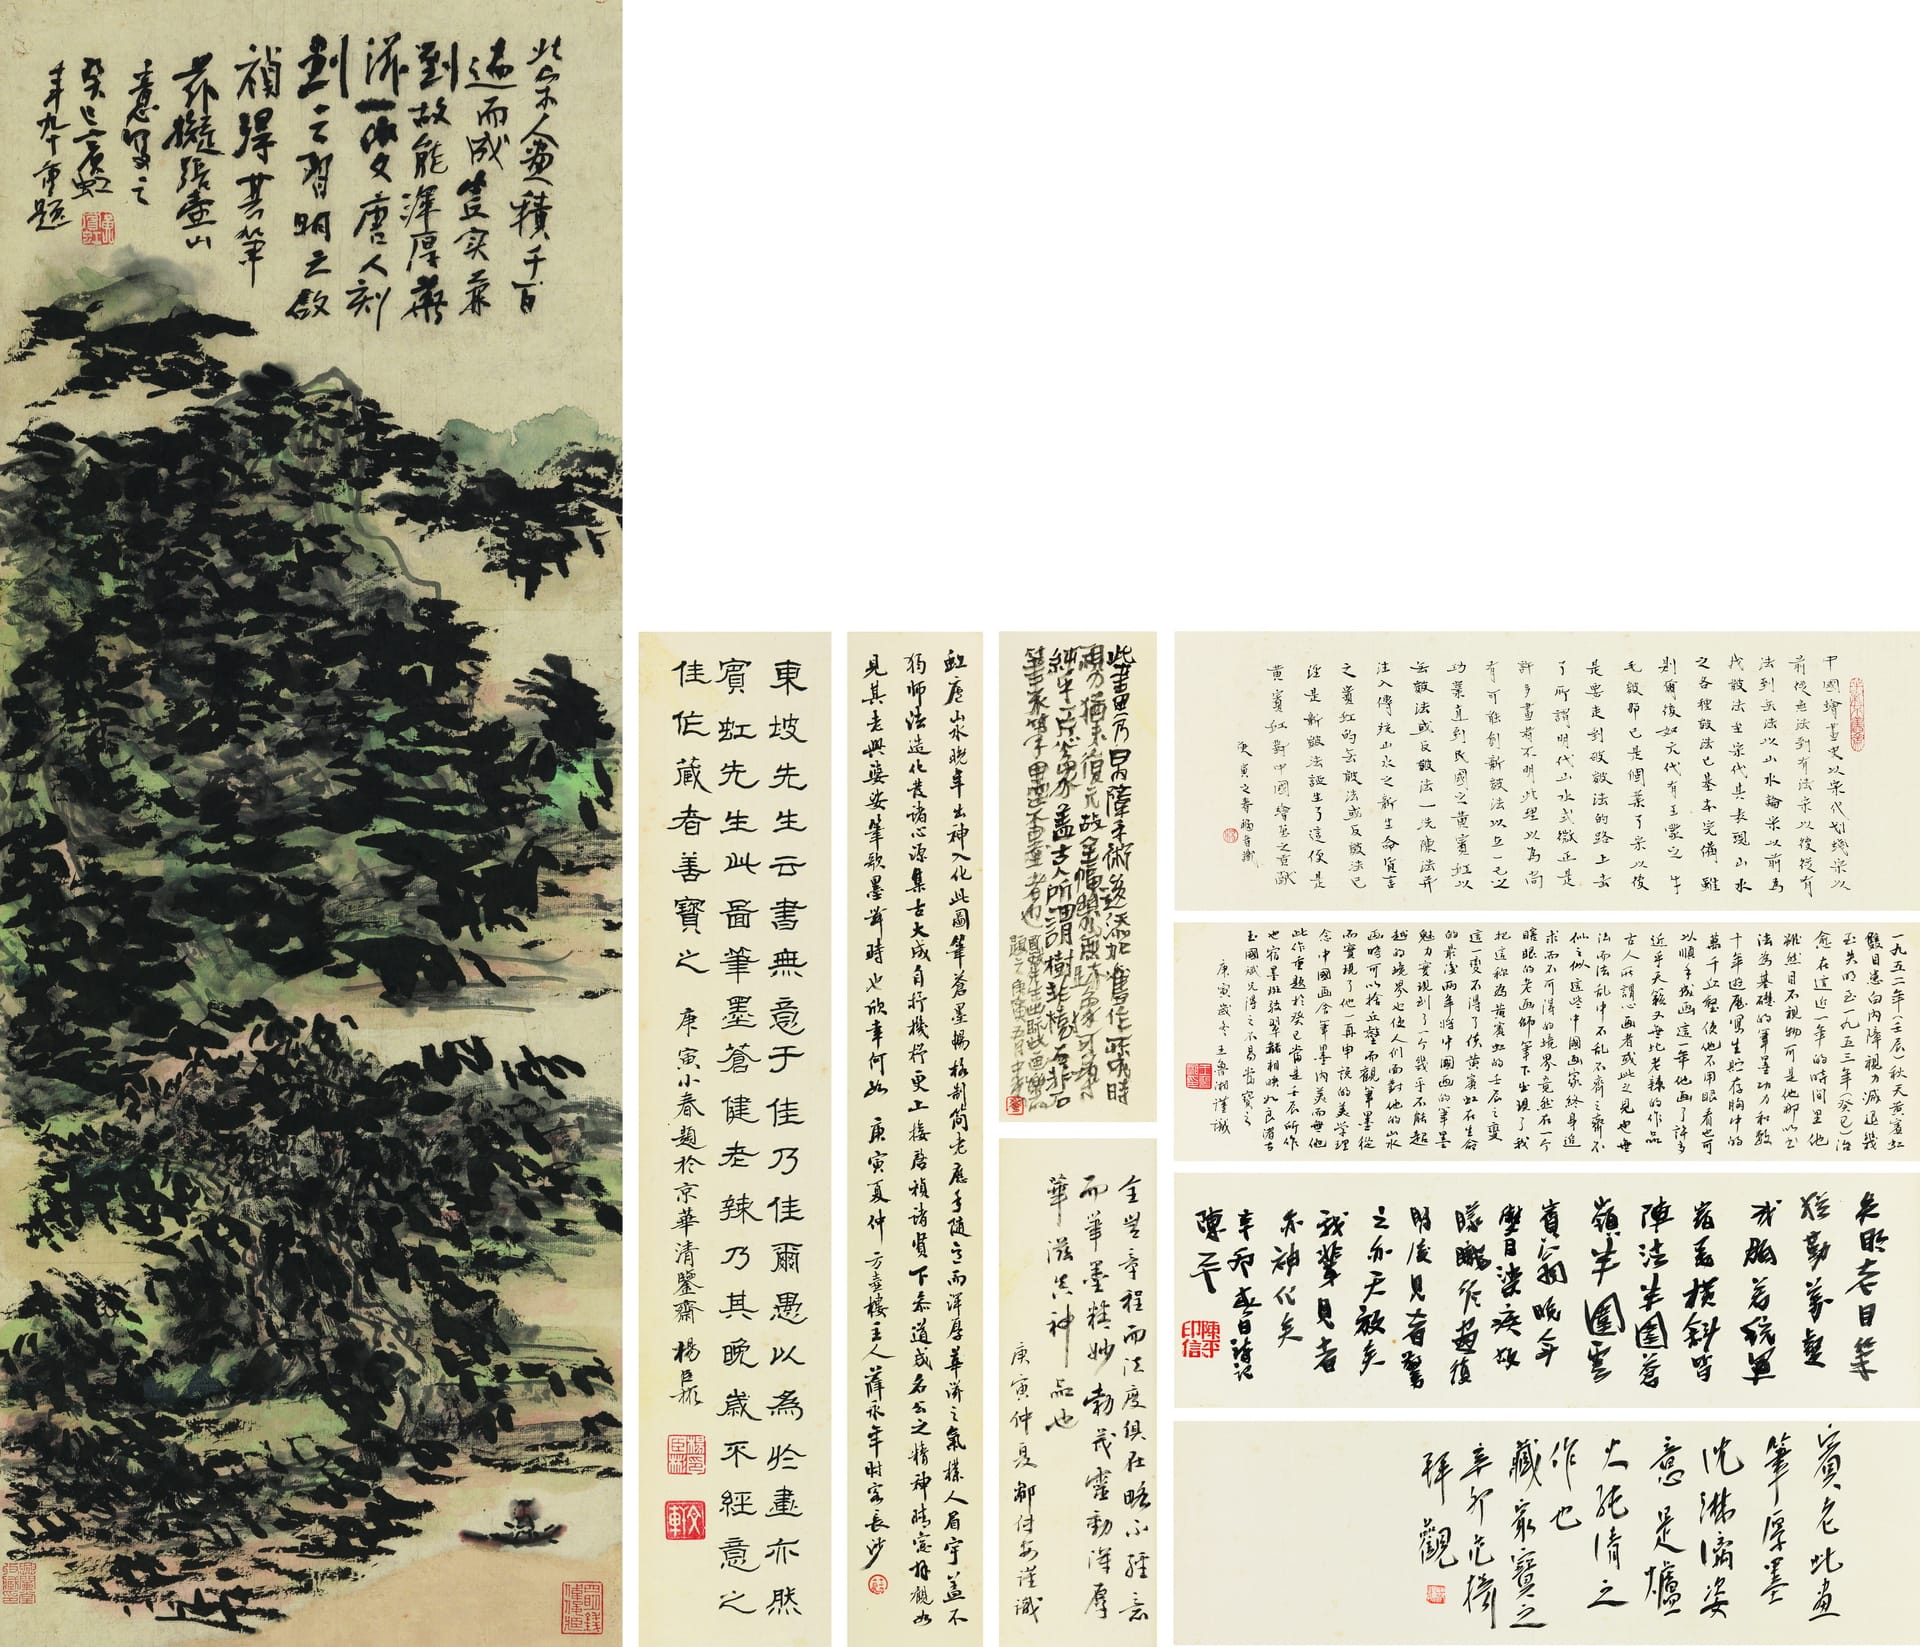 北宋人畫積千百
遍而成虚实兼
到故能渾厚華
滋一變唐人刻
劃之習明之啟
禎得其筆
茲擬張壺山
意寫之
癸巳賓虹
年九十再題
東坡先生云書無意于佳乃佳爾愚以為於畫亦然
賓虹先生此圖筆墨蒼健老辣乃其晚歲不經意之
佳作藏者善寶之 庚寅小春題於京華清鑒齋 楊臣彬
虹廬山水晚年出神入化此圖筆蒼墨暢格制簡老應手隨意而渾厚華滋之氣撲人眉宇蓋不
獨師法造化發諸心源集古大成自抒機杼更上接啟禎諸賢下忝道咸名公之精神拜觀如
見其老興婆娑筆歌墨舞時也欣幸何如 庚寅夏仲 方壺樓主人薛永年時客長沙
此畫白內障手術後添於舊作時
視力猶未復元故全幅
純乎一片蓋古人所謂樹非樹石非石
筆非筆墨不墨者也
全無章程而法度俱在略不經意
而筆墨精妙勃茂靈動渾厚
華滋真神品也
庚寅仲夏 謹識
中國繪畫史以宋代划线宋以
前從無法到有法宋以後從有
法到無法以山水論宋以前為
找皴法至宋代其表現山水
之各種皴法已基本完備雖
則爾後如元代有王蒙之牛
毛皴那已是個案了宋以後
是要走到破皴法的路上去
了所謂明代山水式微正是
許多畫者不明此理以為尚
有可能創新皴法以立一己之
功業直到民國之黃賓虹以
無皴法或反皴法一洗陳法并
注入傳統山水之新生命質言
之賓虹的無皴法或反皴法已
經是新皴法誕生了這便是
黃賓虹對中國繪畫之貢獻
庚寅之春
一九五二年(壬辰)秋天黃賓虹
雙目患白內障視力減退幾
至失明至一九五三年(癸巳)治
愈在這近一年的時間里他
雖然目不視物可是他卻以書
法為基礎的筆墨功力和數
十年遊歷寫生貯存胸中的
萬千丘壑使他不用眼看也可
以順手成画這一年他画了許多
近乎天籟又無比老辣的作品
古人所謂心画者或此之見也無
法而法乱中不乱不齊之齊不
似之似這些中國画家終身追
求而不可得的境界竟然在一个
瞎眼的老画師筆下出現了我
把這称為黃賓虹的壬辰之變
這一變不得了使黃賓虹在生命
的最後两年將中國画的筆墨
魅力實現到了一个幾乎不能超
越的境界也使人们面對他的山水
画時可以捨丘壑而觀筆墨從
而實現了他一再申説的美學理
念中國画舍筆墨内美而無他
此作重題於癸巳當是壬辰所作
也宿墨斑駁翠赭相映如良渚古
玉國斌兄得之不易當寶之
庚寅歲冬王魯湘謹識
失明老目筆
猶勤萬壑
成胸若統軍
宿墨橫斜皆
陣法半圍蒼
嶺半圍雲
賓翁晚年
曾目染疾故
朦朧作畫復
明后見者驚
之亦天啟矣
我輩見者
亦神化矣
辛卯春日詩記
陳平
陳平印信
賓老此畫
筆厚墨
沈淋漓姿
意是爐
火純清之
作也
藏家寶之
辛卯范揚
拜觀